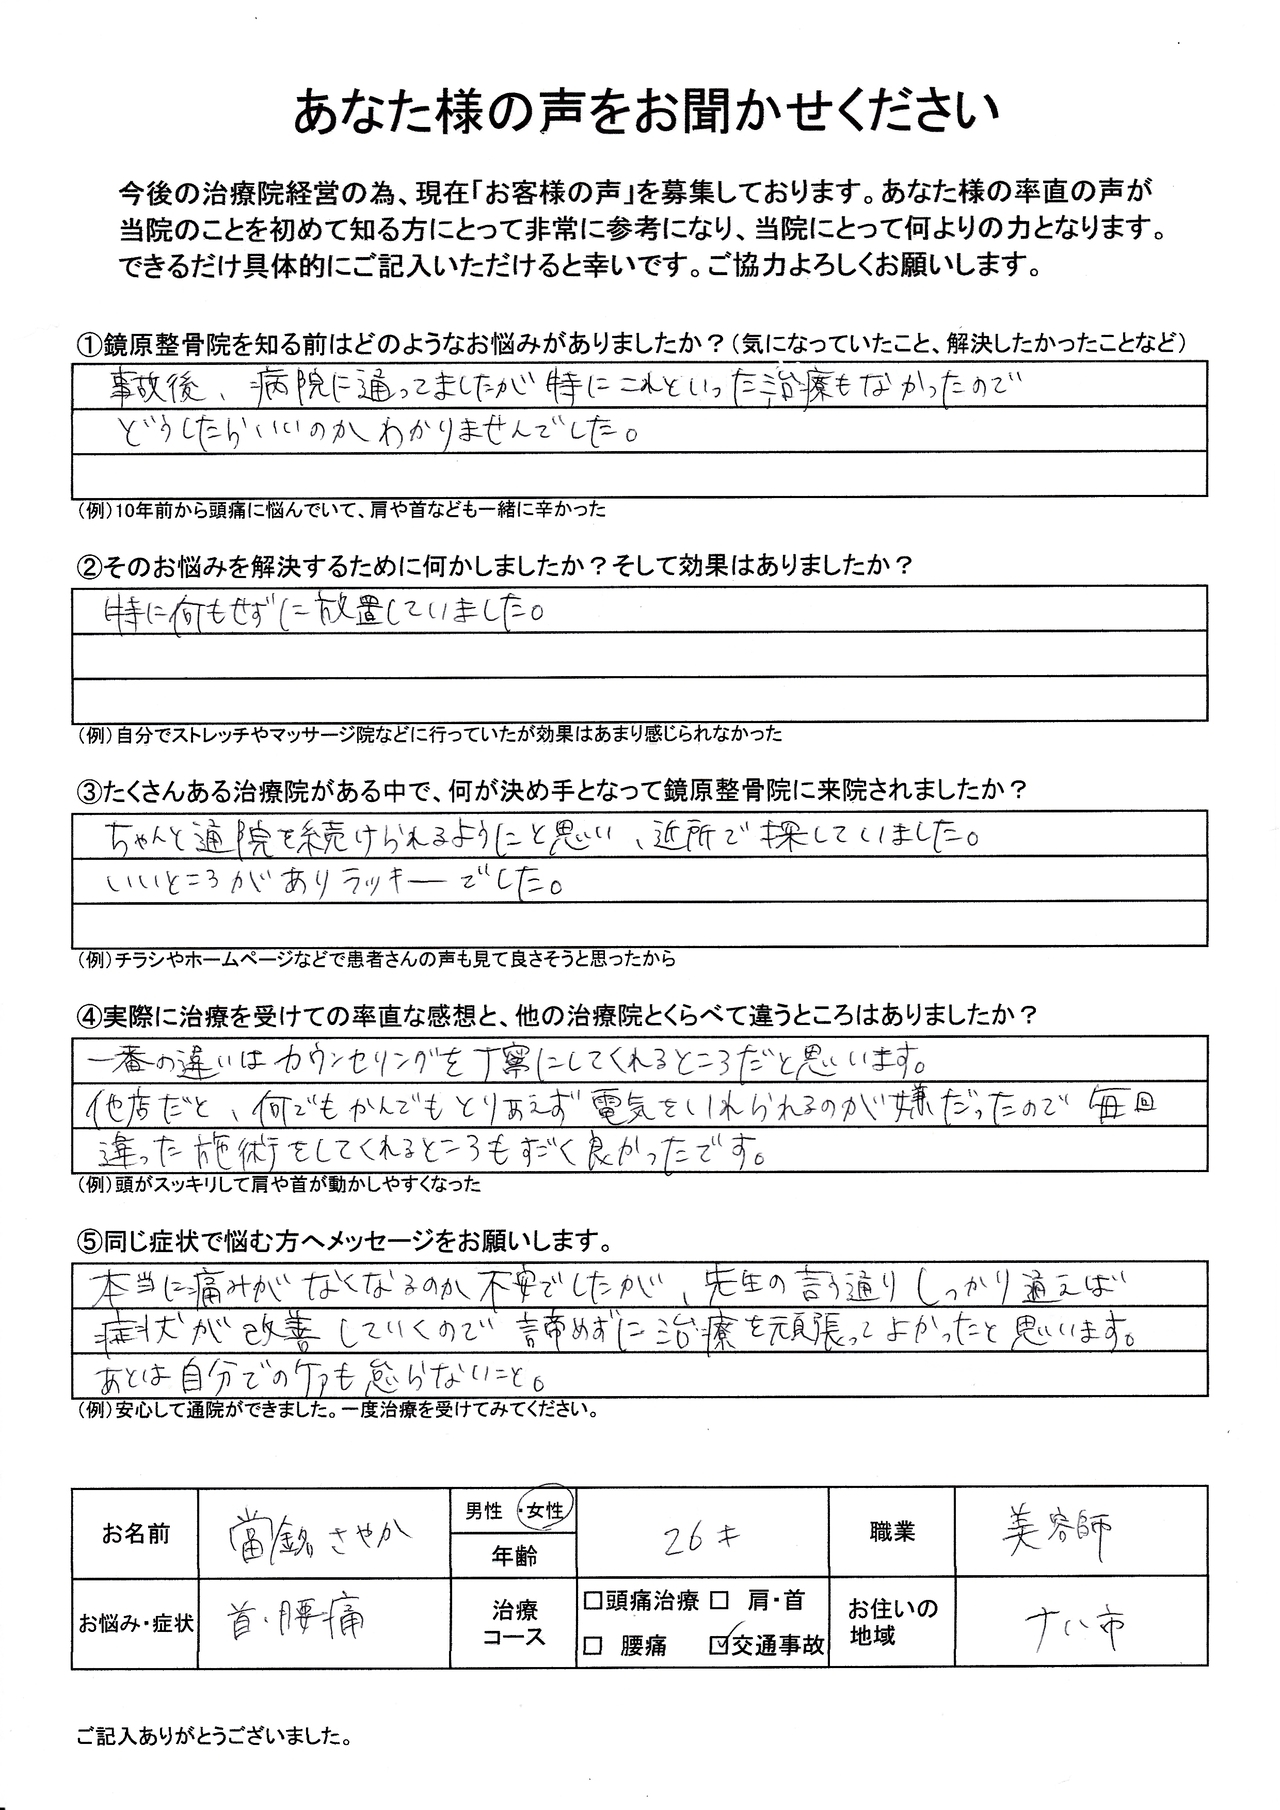 あなた様の声をお聞かせください
今後の治療院経営の為、現在「お客様の声」を募集しております。あなた様の率直の声が
当院のことを初めて知る方にとって非常に参考になり、当院にとって何よりの力となります。
できるだけ具体的にご記入いただけると幸いです。ご協力よろしくお願いします。
①鏡原整骨院を知る前はどのようなお悩みがありましたか?(気になっていたこと、解決したかったことなど)
事故後、病院に通ってましたが特にこれといった治療もなかったので
どうしたらいいのかわかりませんでした。
(例)10年前から頭痛に悩んでいて、肩や首なども一緒に辛かった
②そのお悩みを解決するために何かしましたか?そして効果はありましたか?
特に何もせずに放置していました。
(例)自分でストレッチやマッサージ院などに行っていたが効果はあまり感じられなかった
③たくさんある治療院がある中で、何が決め手となって鏡原整骨院に来院されましたか?
ちゃんと通院を続けられるようにと思い、近所で探していました。
いいところがありラッキーでした。
(例)チラシやホームページなどで患者さんの声も見て良さそうと思ったから
④実際に治療を受けての率直な感想と、他の治療院とくらべて違うところはありましたか?
一番の違いはカウンセリングを丁寧にしてくれるところだと思います。
他店だと、何でもかんでもとりあえず電気をいれられるのが嫌だったので毎回
違った施術をしてくれるところもすごく良かったです。
(例)頭がスッキリして肩や首が動かしやすくなった
⑤同じ症状で悩む方へメッセージをお願いします。
本当に痛みがなくなるのか不安でしたが、先生の言う通りしっかり通えば
症状が改善していくので諦めずに治療を頑張ってよかったと思います。
あとは自分でのケアも怠らないこと。
(例)安心して通院ができました。一度治療を受けてみてください。
お名前 當銘さやか 男性・女性 年齢 26才 職業 美容師
お悩み・症状 首・腰痛 治療コース □頭痛治療 □ 肩・首 □ 腰痛 ☑交通事故 お住いの地域 市
ご記入ありがとうございました。